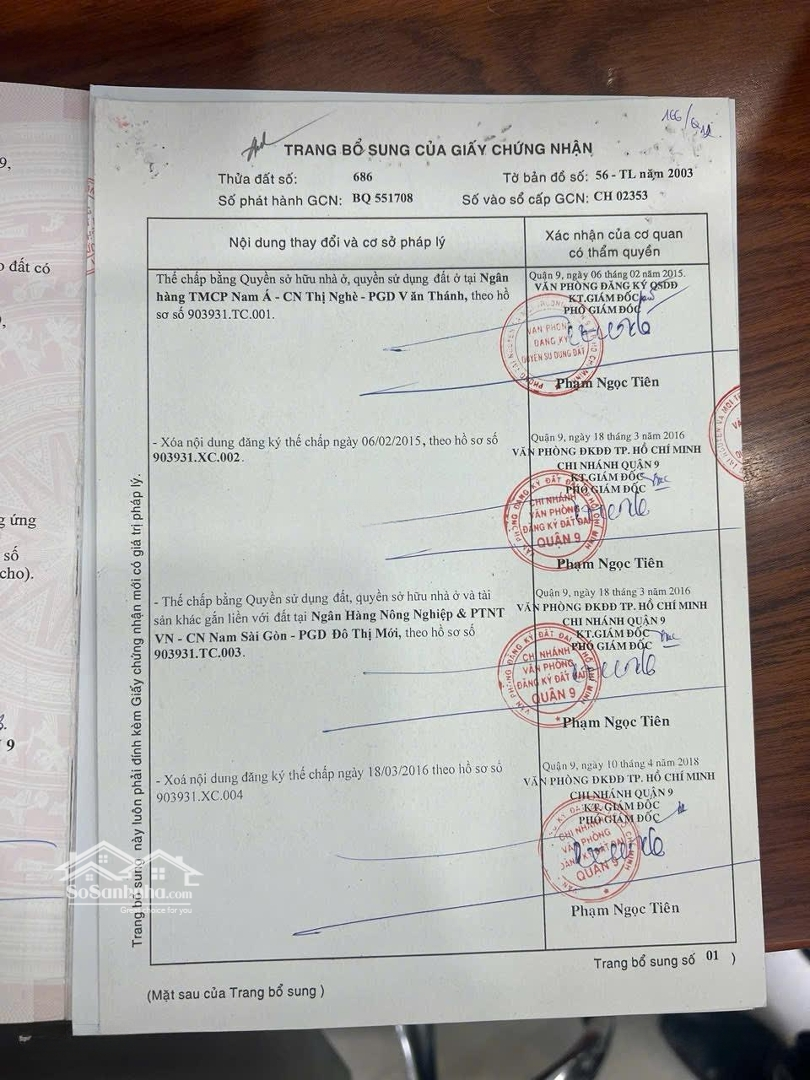 166/
TRANG BỔ SUNG CỦA GIẤY CHỨNG NHẬN
Thửa đất số: 686 Tờ bản đồ số: 56 - TL năm 2003
Số phát hành GCN: BQ 551708 Số vào sổ cấp GCN: CH 02353
Nội dung thay đổi và cơ sở pháp lý
Xác nhận của cơ quan
có thẩm quyền
Thế chấp bằng Quyền sở hữu nhà ở, quyền sử dụng đất ở tại Ngân
hàng TMCP Nam Á - CN Thị Nghè - PGD Văn Thánh, theo hồ
sơ số 903931.TC.001.
Quận 9, ngày 06 tháng 02 năm 2015.
VĂN PHÒNG ĐĂNG KÝ QSDĐ
KT.GIÁM ĐỐC
PHÓ GIÁM ĐỐC
VĂN PHÒNG
ĐĂNG KÝ
QUYỀN SỬ DỤNG ĐẤT
Phạm Ngọc Tiên
- Xóa nội dung đăng ký thế chấp ngày 06/02/2015, theo hồ sơ số
903931.XC.002.
Quận 9, ngày 18 tháng 3 năm 2016
VĂN PHÒNG ĐKĐĐ TP. HỒ CHÍ MINH
CHI NHÁNH QUẬN 9
KT.GIÁM ĐỐC
PHÓ GIÁM ĐỐC
CHI NHÁNH
VĂN PHÒNG
ĐĂNG KÝ ĐẤT ĐAI
QUẬN 9
Phạm Ngọc Tiên
- Thế chấp bằng Quyền sử dụng đất, quyền sở hữu nhà ở và tài
sản khác gắn liền với đất tại Ngân Hàng Nông Nghiệp & PTNT
VN - CN Nam Sài Gòn - PGD Đô Thị Mới, theo hồ sơ số
903931.TC.003.
Quận 9, ngày 18 tháng 3 năm 2016
VĂN PHÒNG ĐKĐĐ TP. HỒ CHÍ MINH
CHI NHÁNH QUẬN 9
KT.GIÁM ĐỐC
PHÓ GIÁM ĐỐC
CHI NHÁNH
VĂN PHÒNG
ĐĂNG KÝ ĐẤT ĐAI
QUẬN 9
Phạm Ngọc Tiên
- Xoá nội dung đăng ký thế chấp ngày 18/03/2016 theo hồ sơ số
903931.XC.004
Quận 9, ngày 10 tháng 4 năm 2018
VĂN PHÒNG ĐKĐĐ TP. HỒ CHÍ MINH
CHI NHÁNH QUẬN 9
KT. GIÁM ĐỐC
PHÓ GIÁM ĐỐC
CHI NHÁNH
VĂN PHÒNG
ĐĂNG KÝ ĐẤT ĐAI
QUẬN 9
Phạm Ngọc Tiên
Trang bổ sung số 01 )
(Mặt sau của Trang bổ sung )
Trang bổ sung này luôn phải đính kèm Giấy chứng nhận mới có giá trị pháp lý.
9,
đất có
ứng
số
cho).
9
SoSanhnha.com
Great choice for you